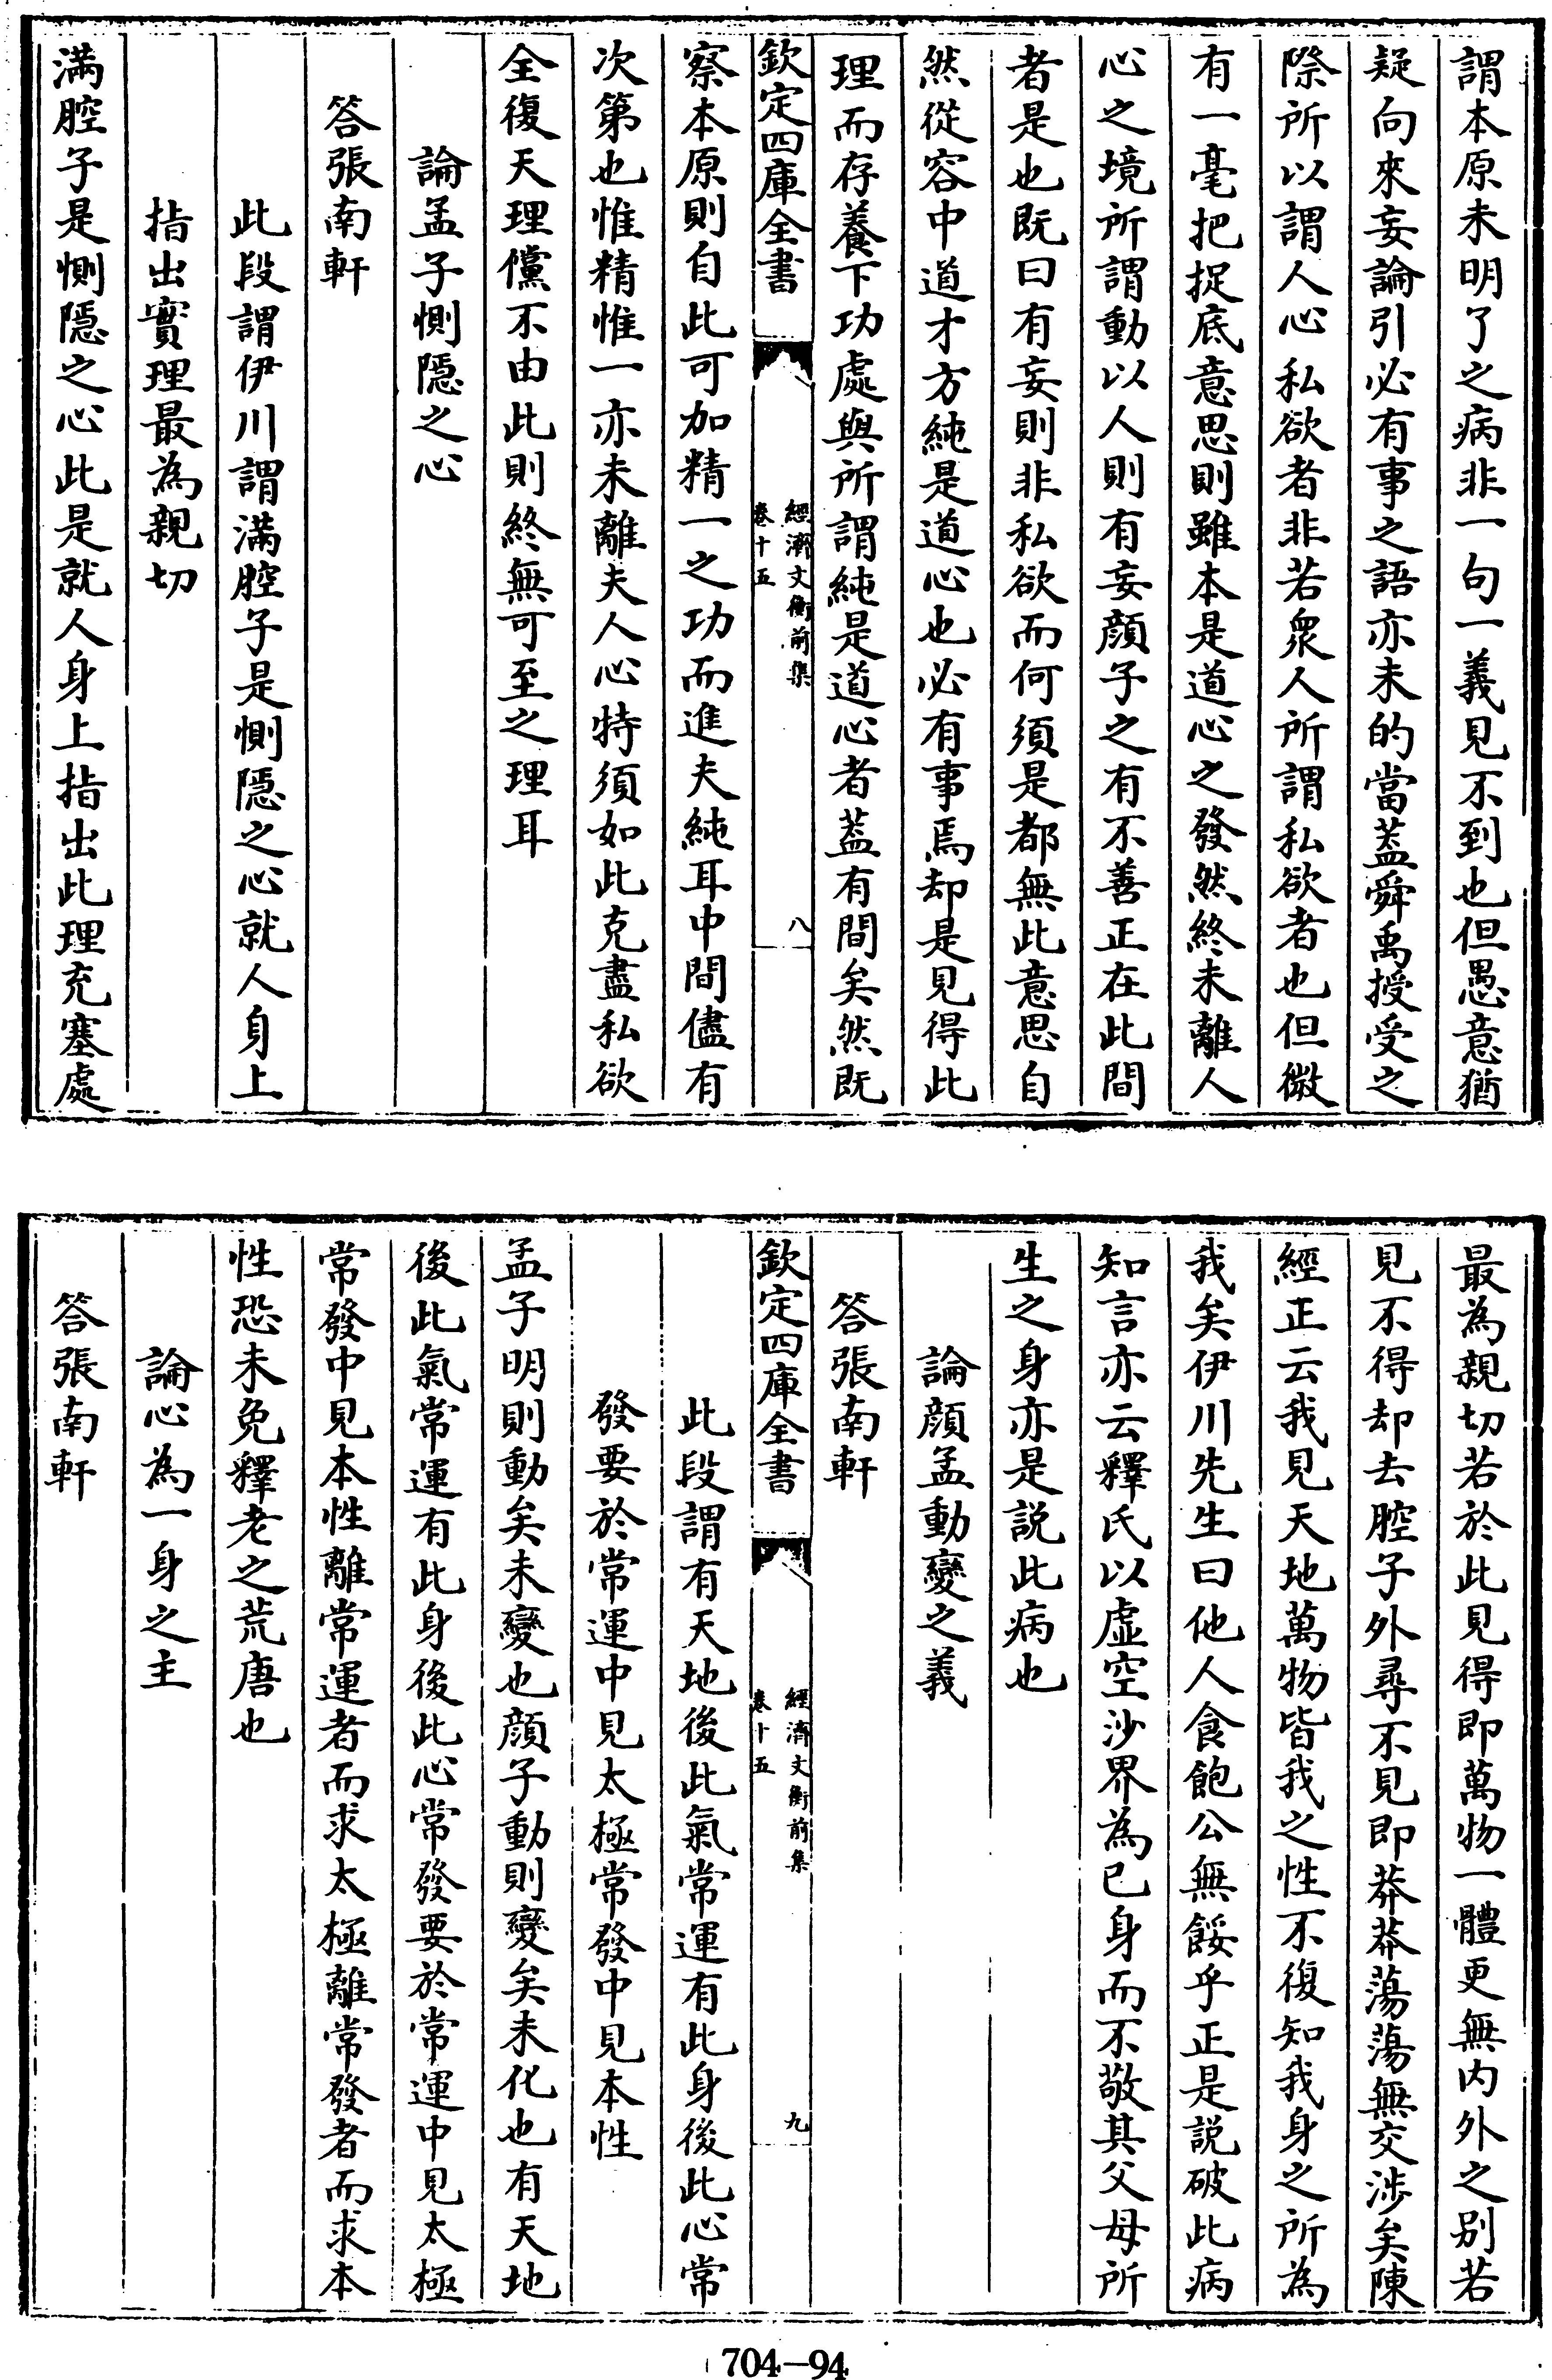 謂本原未明了之病非一句一義見不到也但愚意猶
疑向來妄論引必有事之語亦未的當葢舜禹授受之
際所以謂人心私欲者非若衆人所謂私欲者也但微
有一毫把捉底意思則雖本是道心之發然終未離人
心之境所謂動以人則有妄顔子之有不善正在此間
者是也既曰有妄則非私欲而何須是都無此意思自
然從容中道才方純是道心也必有事焉却是見得此
理而存養下功處與所謂純是道心者葢有間矣然既
欽定四庫全書
經濟文衡前集
卷十五
八
察本原則自此可加精一之功而進夫純耳中間儘有
次第也惟精惟一亦未離夫人心特須如此克盡私欲
全復天理儻不由此則終無可至之理耳
論孟子惻隱之心
答張南軒
此段謂伊川謂滿腔子是惻隱之心就人身上
指出實理最為親切
滿腔子是惻隱之心此是就人身上指出此理充塞處
最為親切若於此見得即萬物一體更無内外之别若
見不得却去腔子外尋不見即莽莽蕩蕩無交涉矣陳
經正云我見天地萬物皆我之性不復知我身之所為
我矣伊川先生曰他人食飽公無餒乎正是説破此病
知言亦云釋氏以虛空沙界為已身而不敬其父母所
生之身亦是説此病也
論顔孟動變之義
答張南軒
欽定四庫全書
經濟文衡前集
卷十五
九
此段謂有天地後此氣常運有此身後此心常
發要於常運中見太極常發中見本性
孟子明則動矣未變也顔子動則變矣未化也有天地
後此氣常運有此身後此心常發要於常運中見太極
常發中見本性離常運者而求太極離常發者而求本
性恐未免釋老之荒唐也
論心為一身之主
答張南軒
704-94